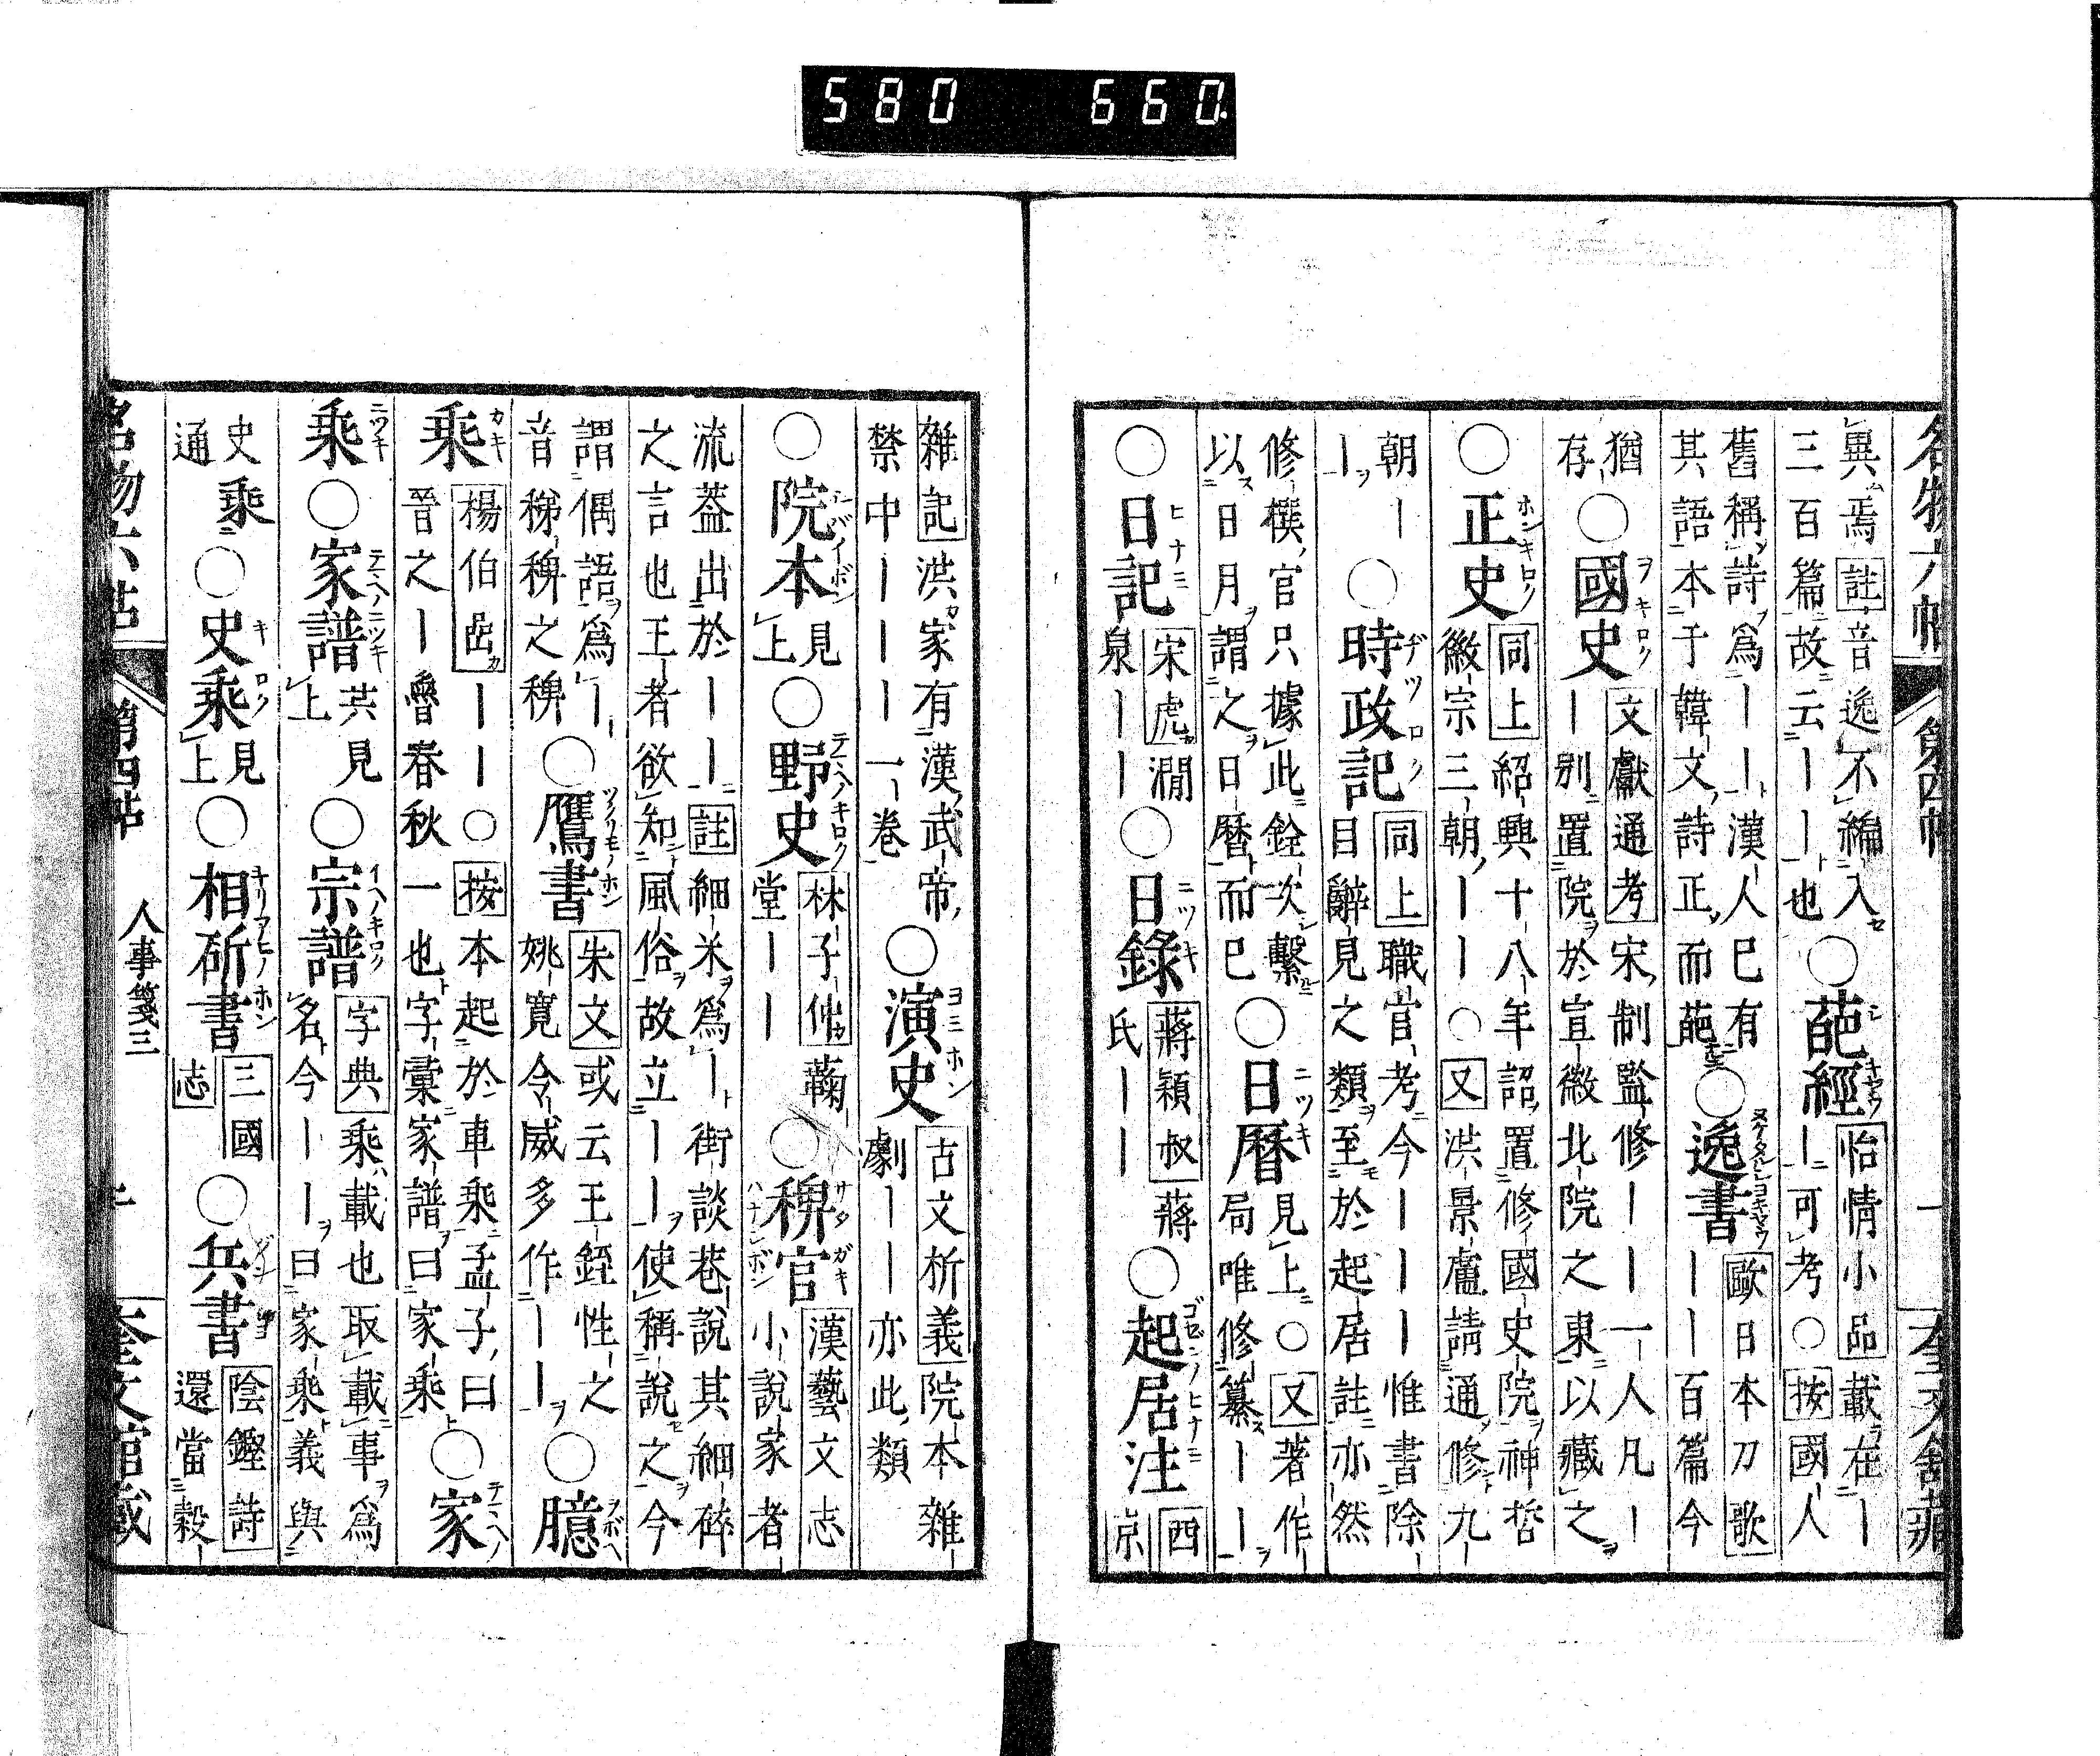 580 660.
名物六帖 第四帖 一 奎文館藏
異焉註音逸不編入○葩經怡情小品載在―
三百篇故云――也―可考○按國人
舊稱詩爲――漢人已有○逸書歐日本刀歌
其語本于韓文詩正而葩――百篇今
猶○國史文獻通考宋制監修――一人凡―
存―別置院於宣徽北院之東以藏之
○正史同上紹興十八年詔置修國史院神哲
徽宗三朝――○又洪景盧請通修九
朝―○時政記同上職官考今―――惟書除
―目辭見之類至於起居註亦然
修撰官只據此銓次繫○日曆見上○又著作
以日月謂之日曆而已局唯修纂――
○日記宋虎澗○日錄蔣穎叔蔣○起居注西
泉――氏――京
雜記洪家有漢武帝○演史古文析義院本雜
禁中―――一卷劇――亦此類
○院本見○野史林子仲蘜○稗官漢藝文志
上堂――小說家者
流蓋出於――註細米爲―街談巷說其細碎
之言也王者欲知風俗故立――使稱說之今
謂偶語爲―○鷹書朱文或云王銍性之○臆
音稊稗之稗姚寬令威多作――
乘楊伯嵒――○按本起於車乘孟子曰○家
晉之―魯春秋一也字彙家譜曰家乘
乘○家譜共見○宗譜字典乘載也取載事爲
上名今――曰家乘義與
史乘○史乘見○相斫書三國○兵書陰鏗詩
通上志還當穀
名物六帖 第四帖 人事箋三 奎文館藏